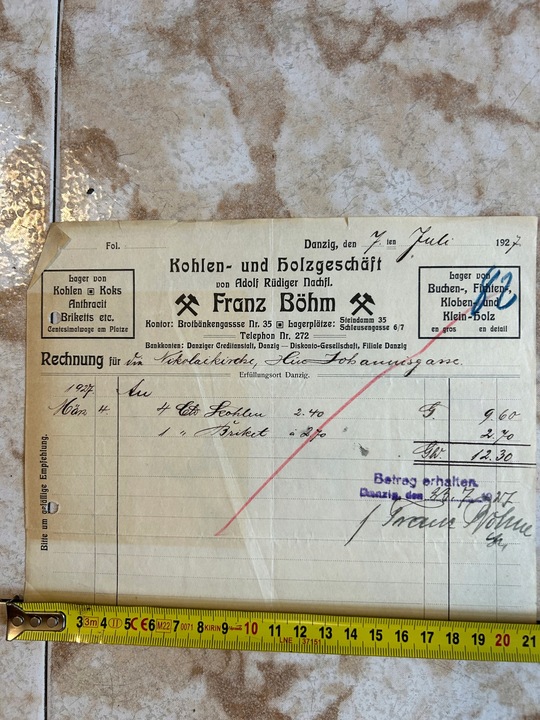 Fol. Danzig, den 7ten Juli 1927
Kohlen- und Holzgeschäft
von Adolf Rüdiger Nachfl.
Franz Böhm
Kontor: Brotbänkengasse Nr. 35 Lagerplätze: Steindamm 35 Schleusengasse 6/7
Telephon Nr. 272
Bankkonten: Danziger Creditanstalt, Danzig — Diskonto-Gesellschaft, Filiale Danzig
Lager von
Kohlen Koks
Anthracit
Briketts etc.
Centesimalwage am Platze
Lager von
Buchen-, Fichten-,
Kloben- und
Klein-Holz
en gros en detail
82
Rechnung für die Nikolaikirche, Hier Johannisgasse.
Erfüllungsort Danzig.
1927 An
März 4 4 Ctr Kohlen 2.40 G. 9.60
1 " Briket à 2.70 " 2.70
Gld. 12.30
Bitte um gefällige Empfehlung.
Betrag erhalten.
Danzig, den 23.7.1927
Franz Böhm
3 3m 4 II 5 CE 6 M22 7 0071 8 KIRIN 9 10 11 12 13 14 15 16 17 18 19 20 21
LNE 37151